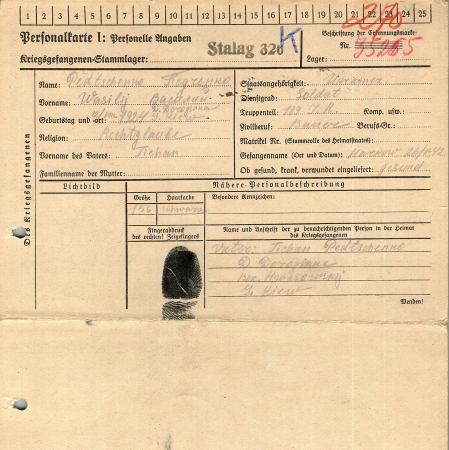 1 2 3 4 5 6 7 8 9 10 11 12 13 14 15 16 17 18 19 20 21 22 23 24 25
Personalkarte I: Personelle Angaben
Kriegsgefangenen-Stammlager: Stalag 326 K
Beschriftung der Erkennungsmarke
Nr.
Lager:
Des Kriegsgefangenen
Name: Pedtschenko Педченко
Vorname: Wasilij Василий
Geburtstag und -ort: 1924
Religion: Rechtglaube
Vorname des Vaters: Tichan
Familienname der Mutter:
Staatsangehörigkeit: Ukrainer
Dienstgrad: Soldat
Truppenteil: I.R. Komp. usw.:
Zivilberuf: Bauer Berufs-Gr.:
Matrikel Nr. (Stammrolle des Heimatstaates):
Gefangennahme (Ort und Datum):
Ob gesund, krank, verwundet eingeliefert: gesund
Lichtbild
Nähere Personalbeschreibung
Größe Haarfarbe
156 schwarz
Besondere Kennzeichen:
Fingerabdruck
des rechten! Zeigefingers
Name und Anschrift der zu benachrichtigenden Person in der Heimat
des Kriegsgefangenen
Vater: Tichan Pedtschenko
D.
G. Kiew
Wenden!